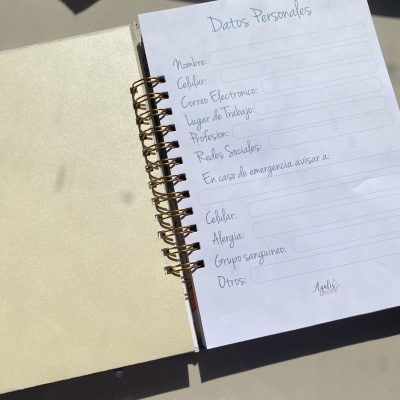 Datos Personales
Nombre:
Celular:
Correo Electrónico:
Lugar de Trabajo:
Profesion:
Redes Sociales:
En caso de emergencia avisar a:
Celular:
Alergia:
Grupo sanguineo:
Otros: